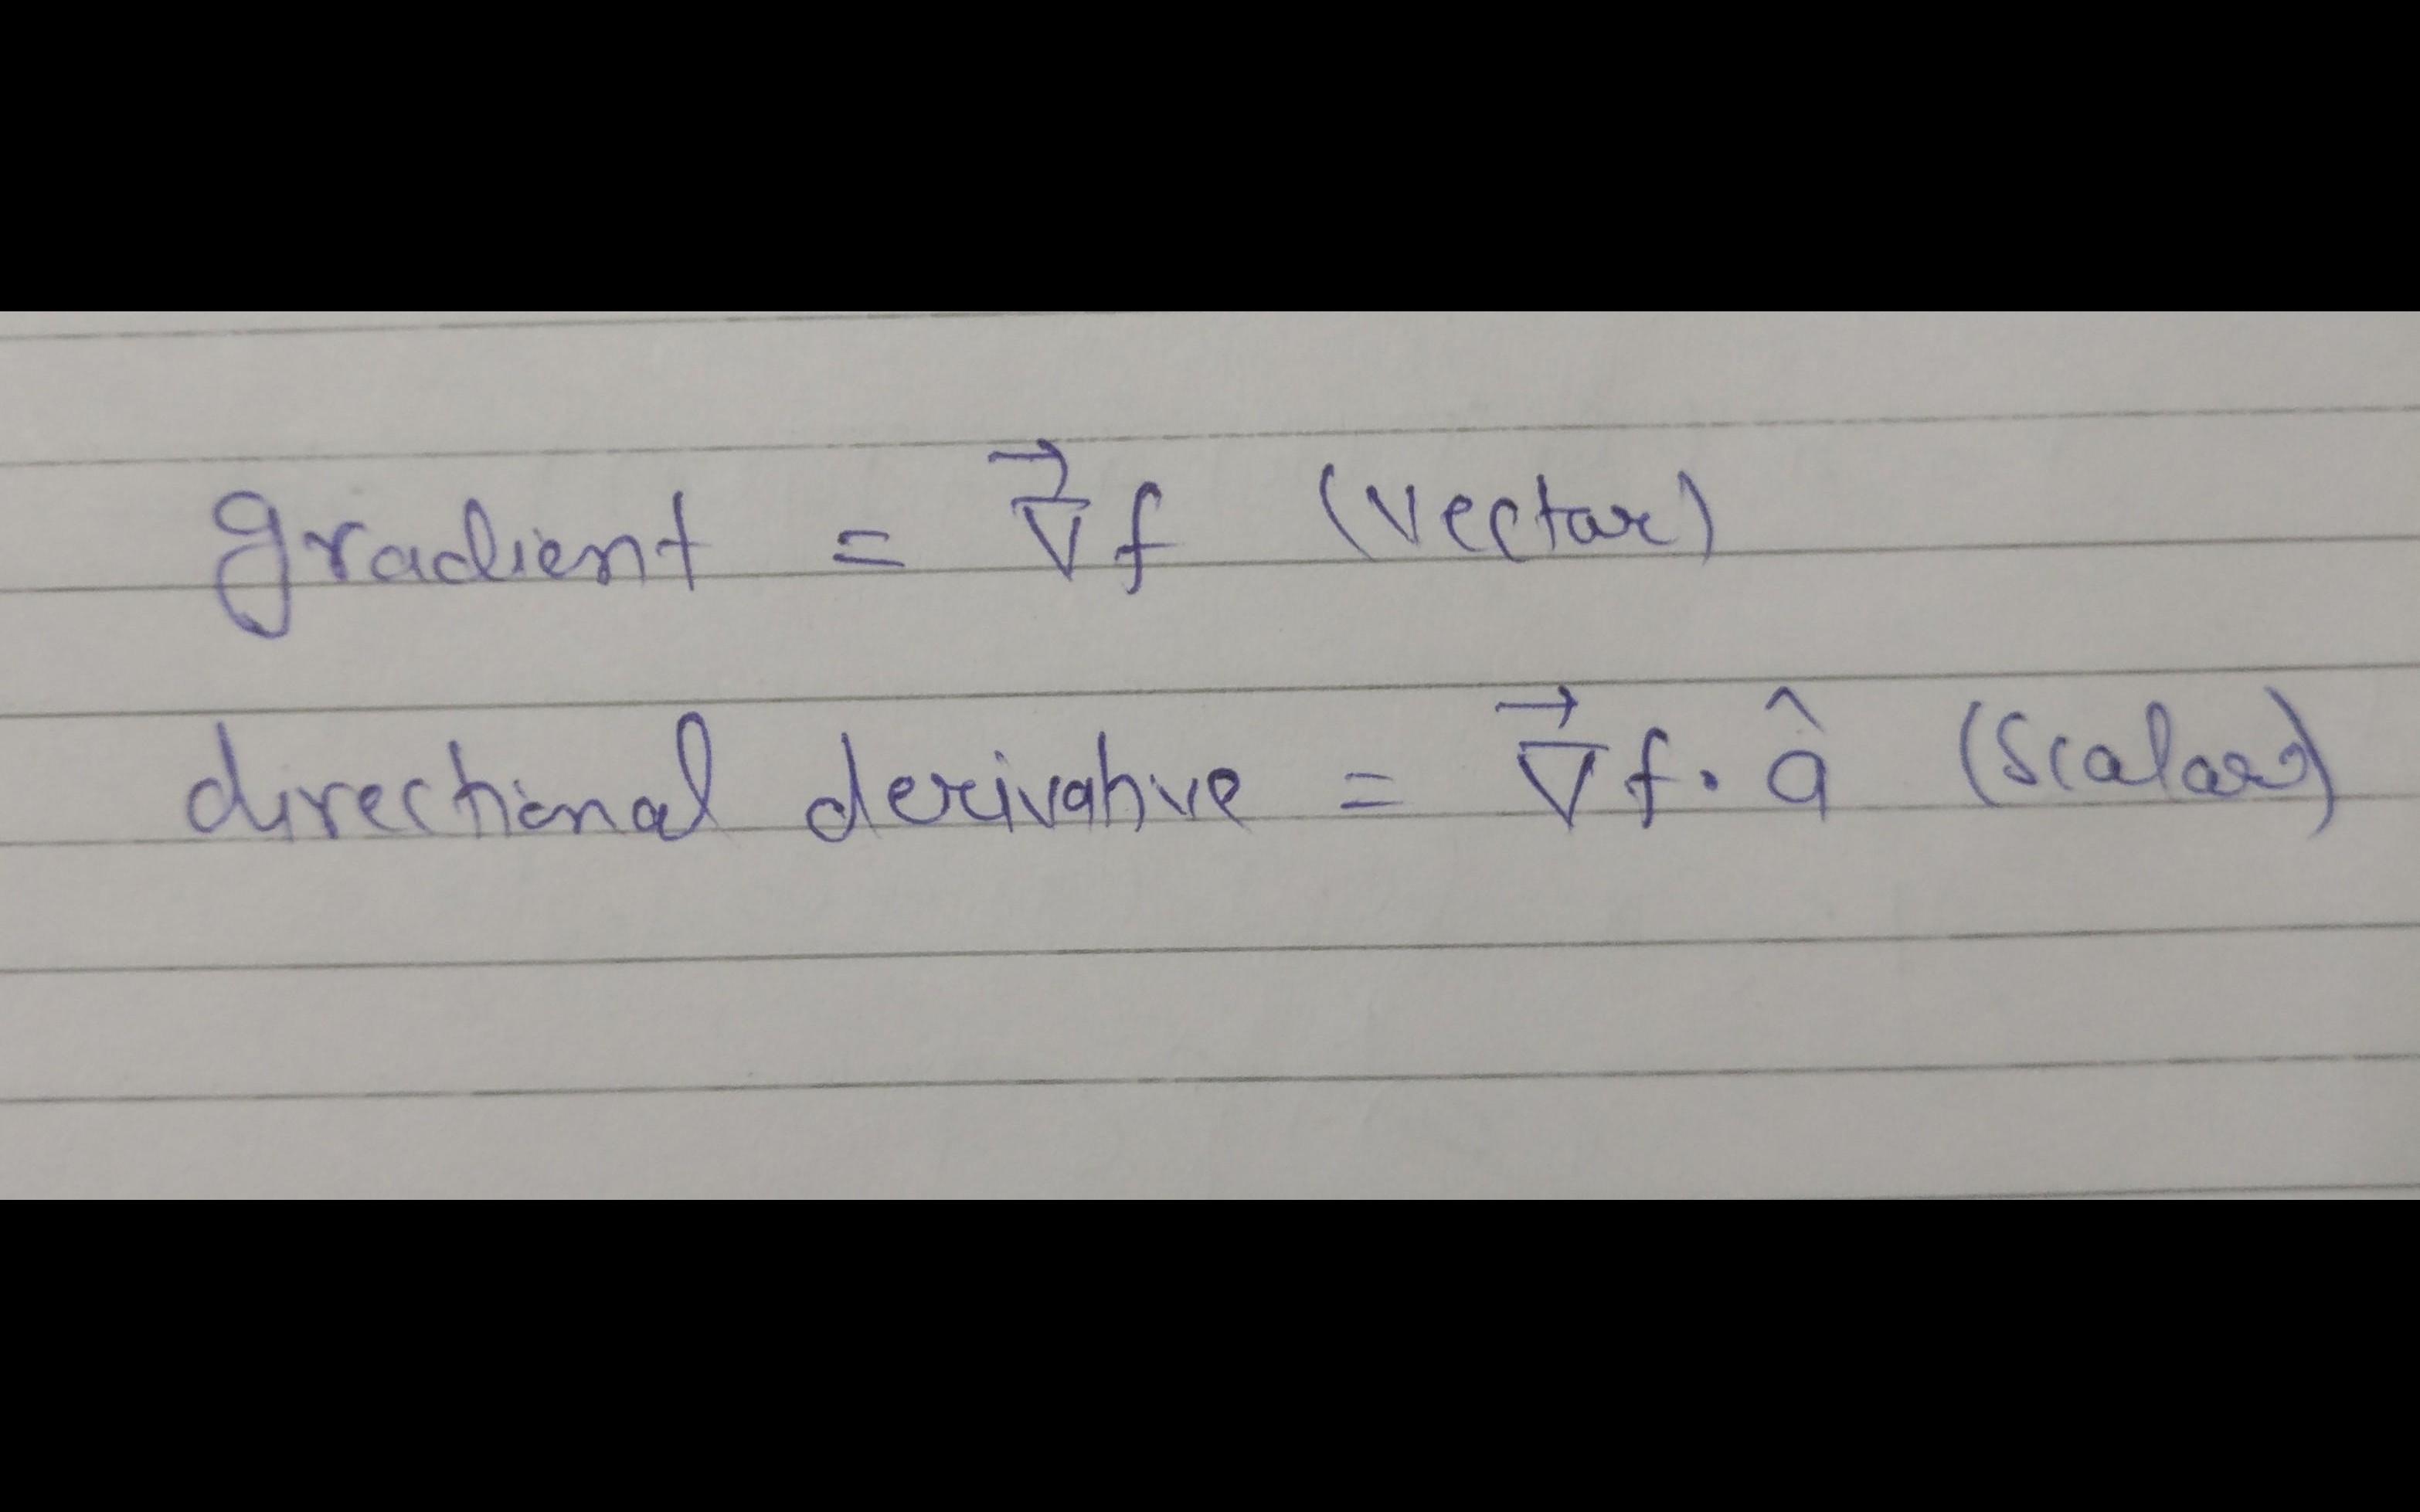 gradient = ∇⃗f (vectar)
directional derivative = ∇⃗f · â (scalar)